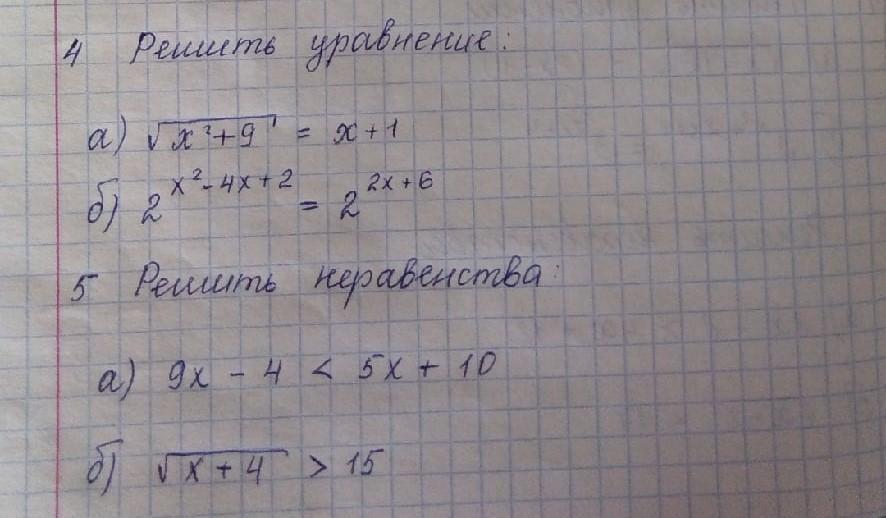 4 Решить уравнение:
а) √(x²+9) = x+1
б) 2^(x²-4x+2) = 2^(2x+6)
5 Решить неравенства:
а) 9x - 4 < 5x + 10
б) √(x+4) > 15